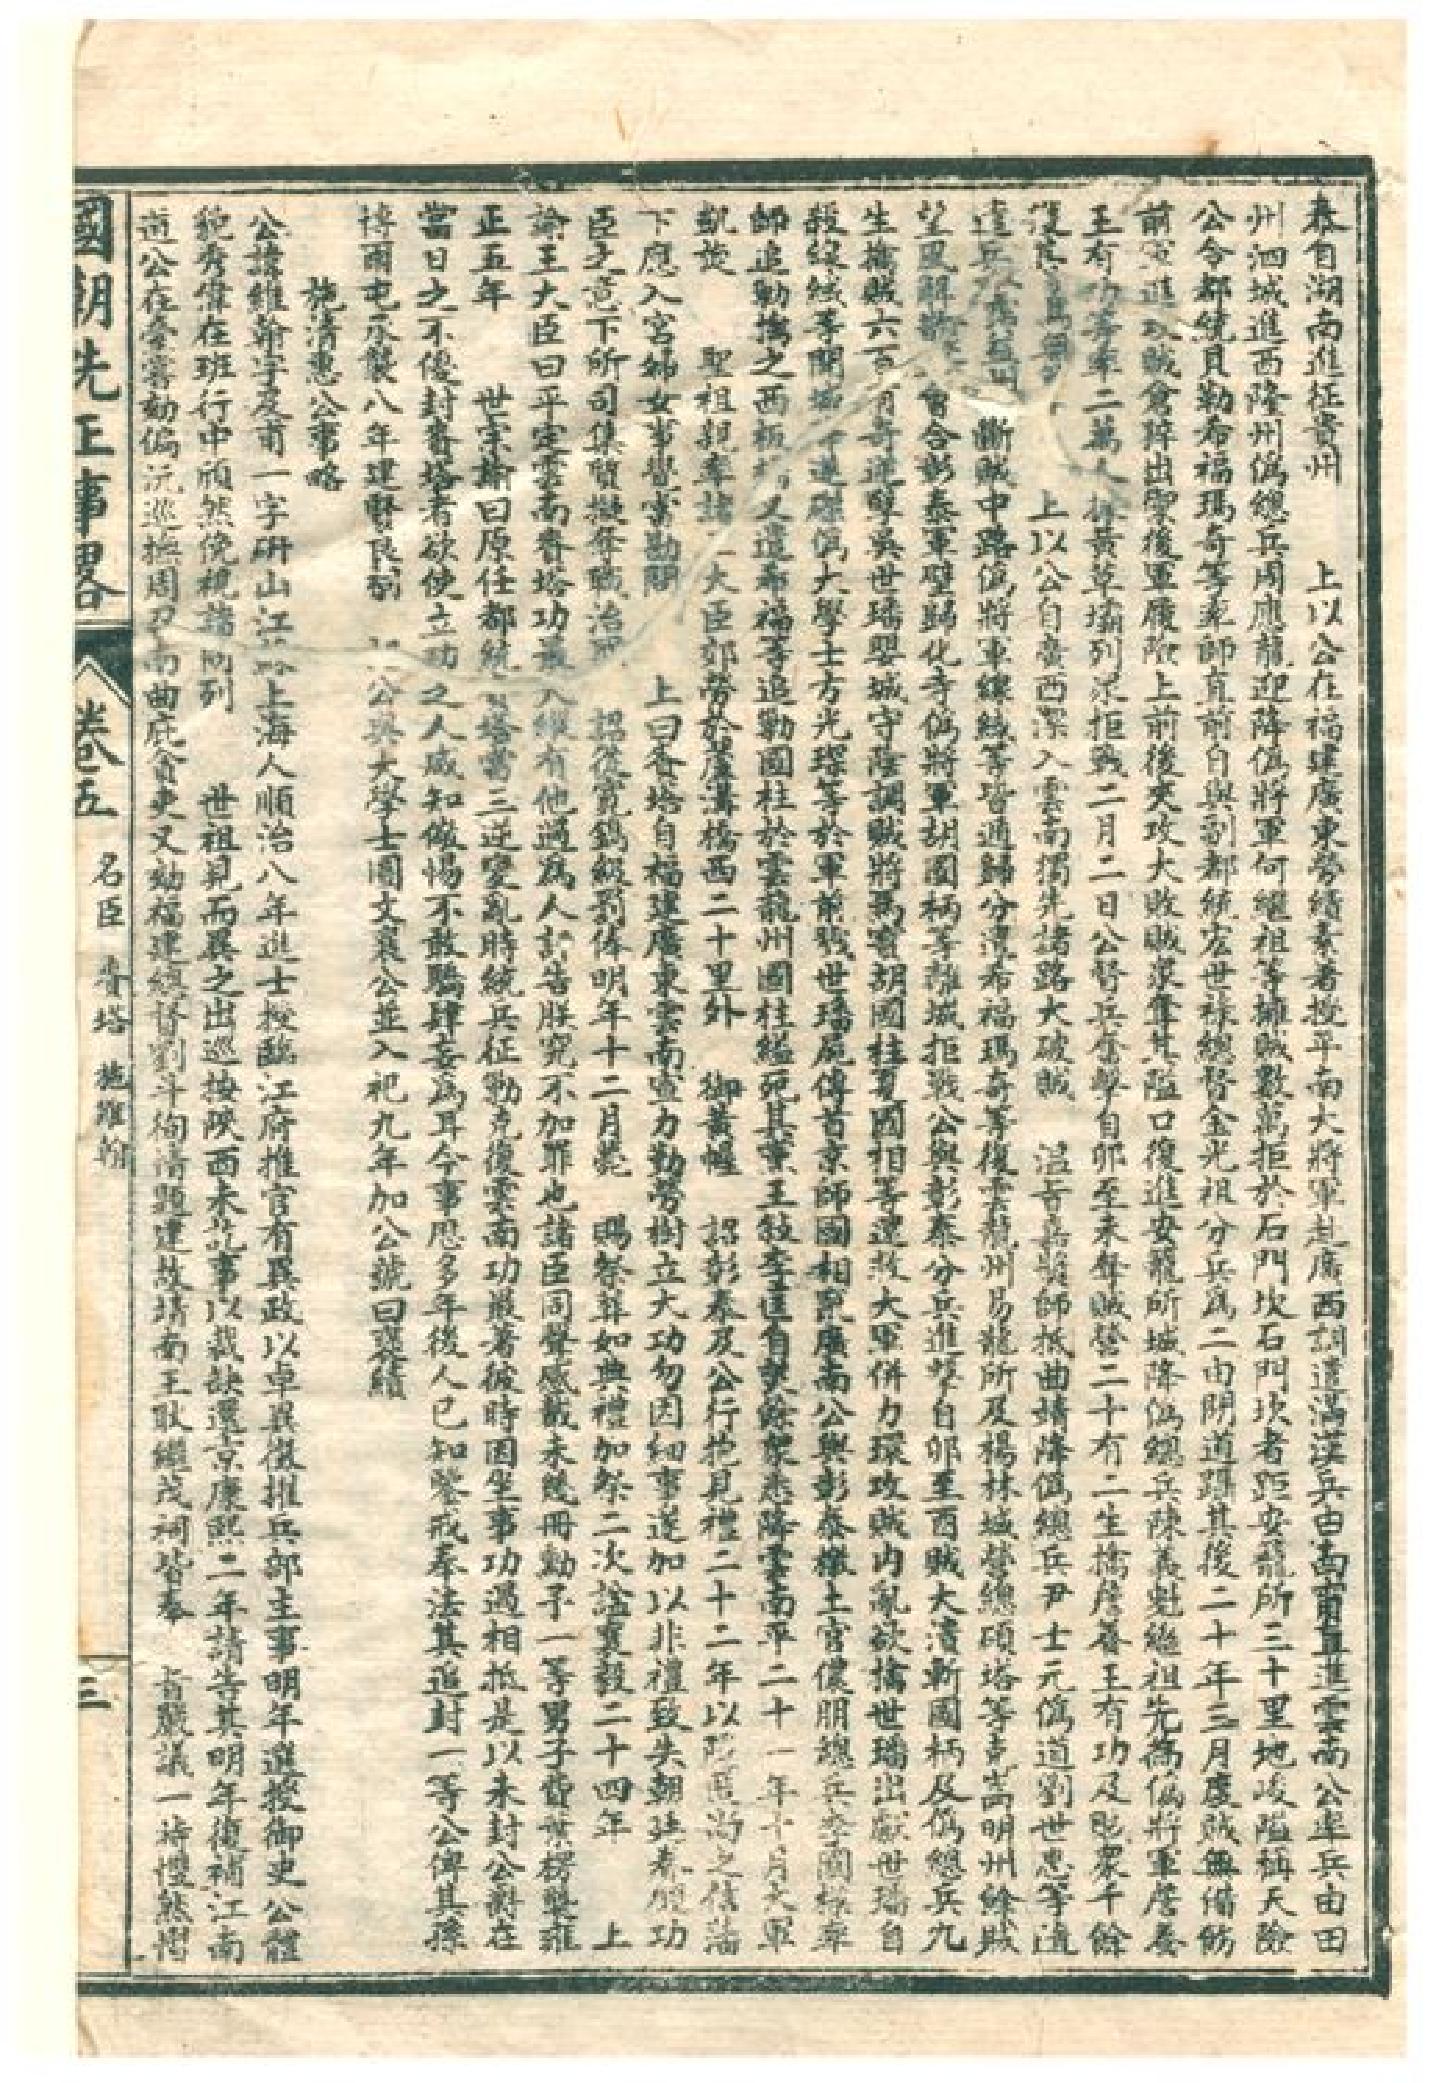 泰自湖南進征貴州 上以公在福建廣東勞績素著授平南大將軍赴廣西調遣滿漢兵由南甯直進雲南公率兵由田
州泗城進西隆州偽總兵周應龍迎降偽將軍何繼祖等擁賊數萬拒於石門坎石門坎者距安籠所三十里地峻隘稱天險
公令都統貝勒希福瑪奇等率師直前自與副都統宏世祿總督金光祖分兵爲二由閒道躡其後二十年三月度賊無備飭
前軍進攻賊倉猝出禦後軍履險上前後夾攻大敗賊衆奪其隘口復進安籠所城降偽總兵陳義魁繼祖先爲偽將軍詹養
王有功等率二萬人據黃草壩列象拒戰二月二日公督兵奮擊自卯至未奪賊營二十有二生擒詹養王有功及賊衆千餘
上以公自廣西深入雲南獨先諸路大破賊 溫旨嘉 師抵曲靖降偽總兵尹士元偽道劉世忠等遣
斷賊中路偽將軍線緎等皆遁歸分遣希福瑪奇等復雲龍州易龍所及楊林城營總碩塔等克嵩明州餘賊
望風 會合彰泰軍壁歸化寺偽將軍胡國柄等離城拒戰公與彰泰分兵進擊自卯至酉賊大潰斬國柄及偽總兵九
生擒賊六百有奇逆孽吳世璠嬰城守陰調賊將馬寶胡國柱夏國相等還救大軍併力環攻賊內亂欲擒世璠出獻世璠自
殺線緎等開城 進磔偽大學士方光琛等於軍前戮世璠屍傳首京師國相 廣南公與彰泰檄土官儂朋總兵李國樑率
師追勦擒之西板橋又遣希福等追勦國柱於雲龍州國柱縊死其黨王 李匡自焚餘衆悉降雲南平二十一年十月大軍
凱旋 聖祖親率諸王大臣郊勞於蘆溝橋西二十里外 御黃幄 詔彰泰及公行抱見禮二十二年以隱匿尚之信藩
下應入宮婦女事覺當勘問 上曰賚塔自福建廣東雲南宣力勤勞樹立大功勿因細事遽加以非禮致失朝廷眷顧功
臣之意下所司集質擬奪職治罪 詔從寬鐫級罰俸明年十二月薨 賜祭葬如典禮加祭二次諡襄毅二十四年 上
諭王大臣曰平定雲南賚塔功最大雖有他過爲人訐告朕究不加罪也諸臣同聲感戴未幾冊勳予一等男子費葉楞襲雍
正五年 世宗諭曰原任都統賚塔當三逆變亂時統兵征勦克復雲南功最著彼時因坐事功過相抵是以未封公爵在
當日之不優封賚塔者欲使立功之人咸知儆惕不敢驕肆妄爲耳今事歷多年後人已知鑒戒奉法其追封一等公俾其孫
博爾屯承襲八年建賢良祠 公與大學士圖文襄公並入祀九年加公號曰襃績
施清惠公事略
公諱維翰字及甫一字硏山江 上海人順治八年進士授臨江府推官有異政以卓異徵擢兵部主事明年選授御史公體
貌秀偉在班行中頎然俛視諸同列 世祖見而異之出巡按陝西未 事以裁缺還京康熙二年請告其明年復補江南
道公在臺 劾偏沅巡撫周召南曲庇貪吏又劾福建總督劉斗徇情題建故靖南王耿繼茂祠皆奉 旨嚴議一時 然憎
國朝先正事畧
卷五
名臣 賚塔 施維翰
三